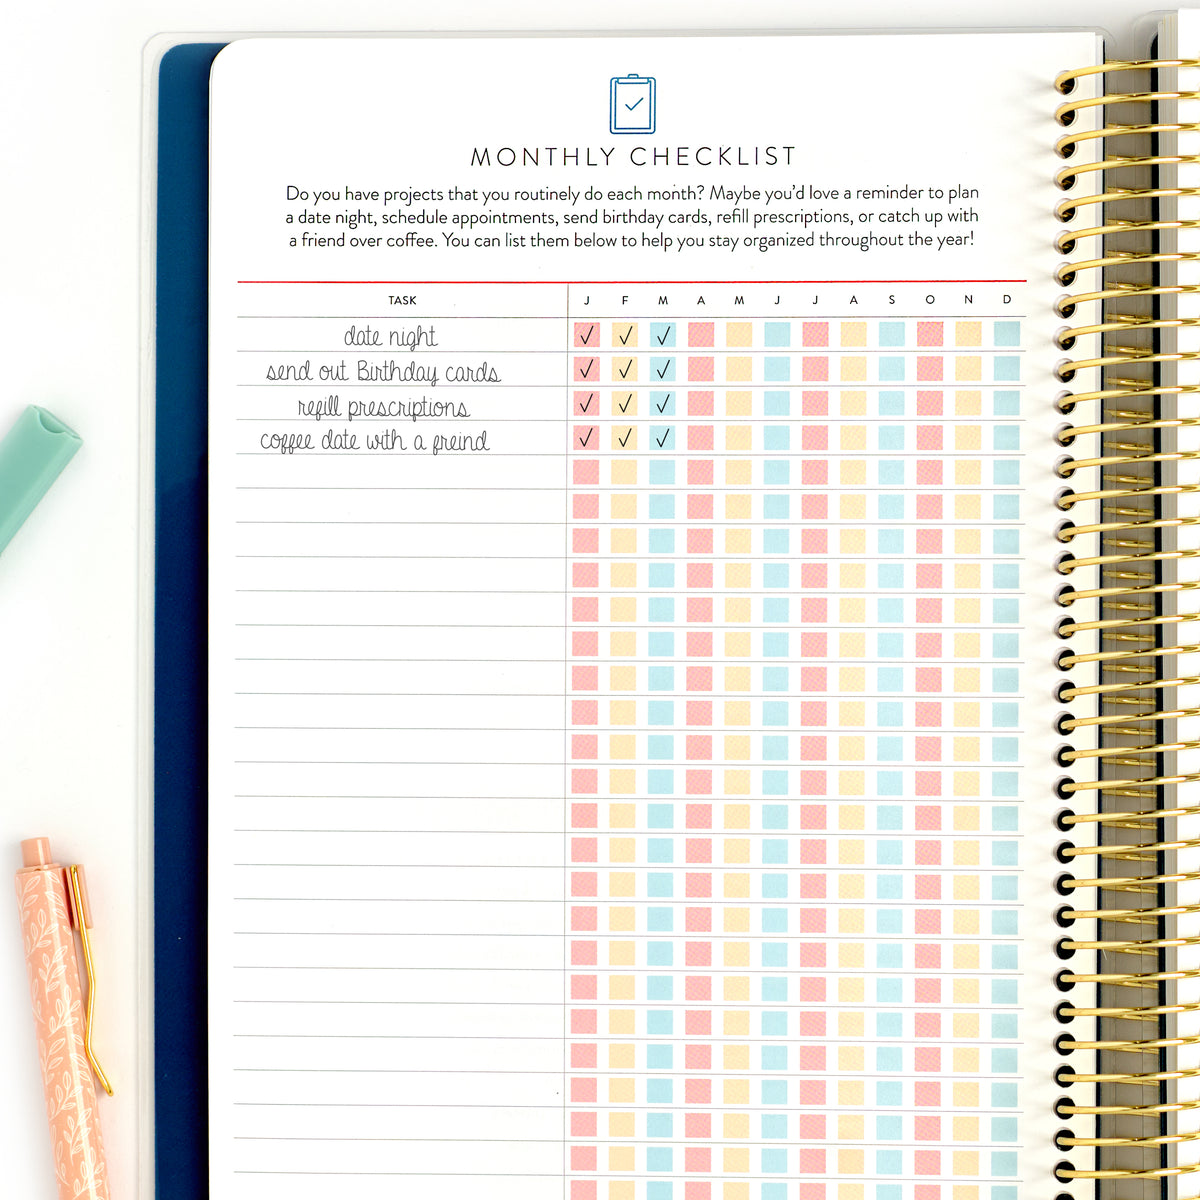 MONTHLY CHECKLIST
Do you have projects that you routinely do each month? Maybe you'd love a reminder to plan
a date night, schedule appointments, send birthday cards, refill prescriptions, or catch up with
a friend over coffee. You can list them below to help you stay organized throughout the year!
TASK J F M A M J J A S O N D
date night ✓ ✓ ✓
send out Birthday cards ✓ ✓ ✓
refill prescriptions ✓ ✓ ✓
coffee date with a freind ✓ ✓ ✓